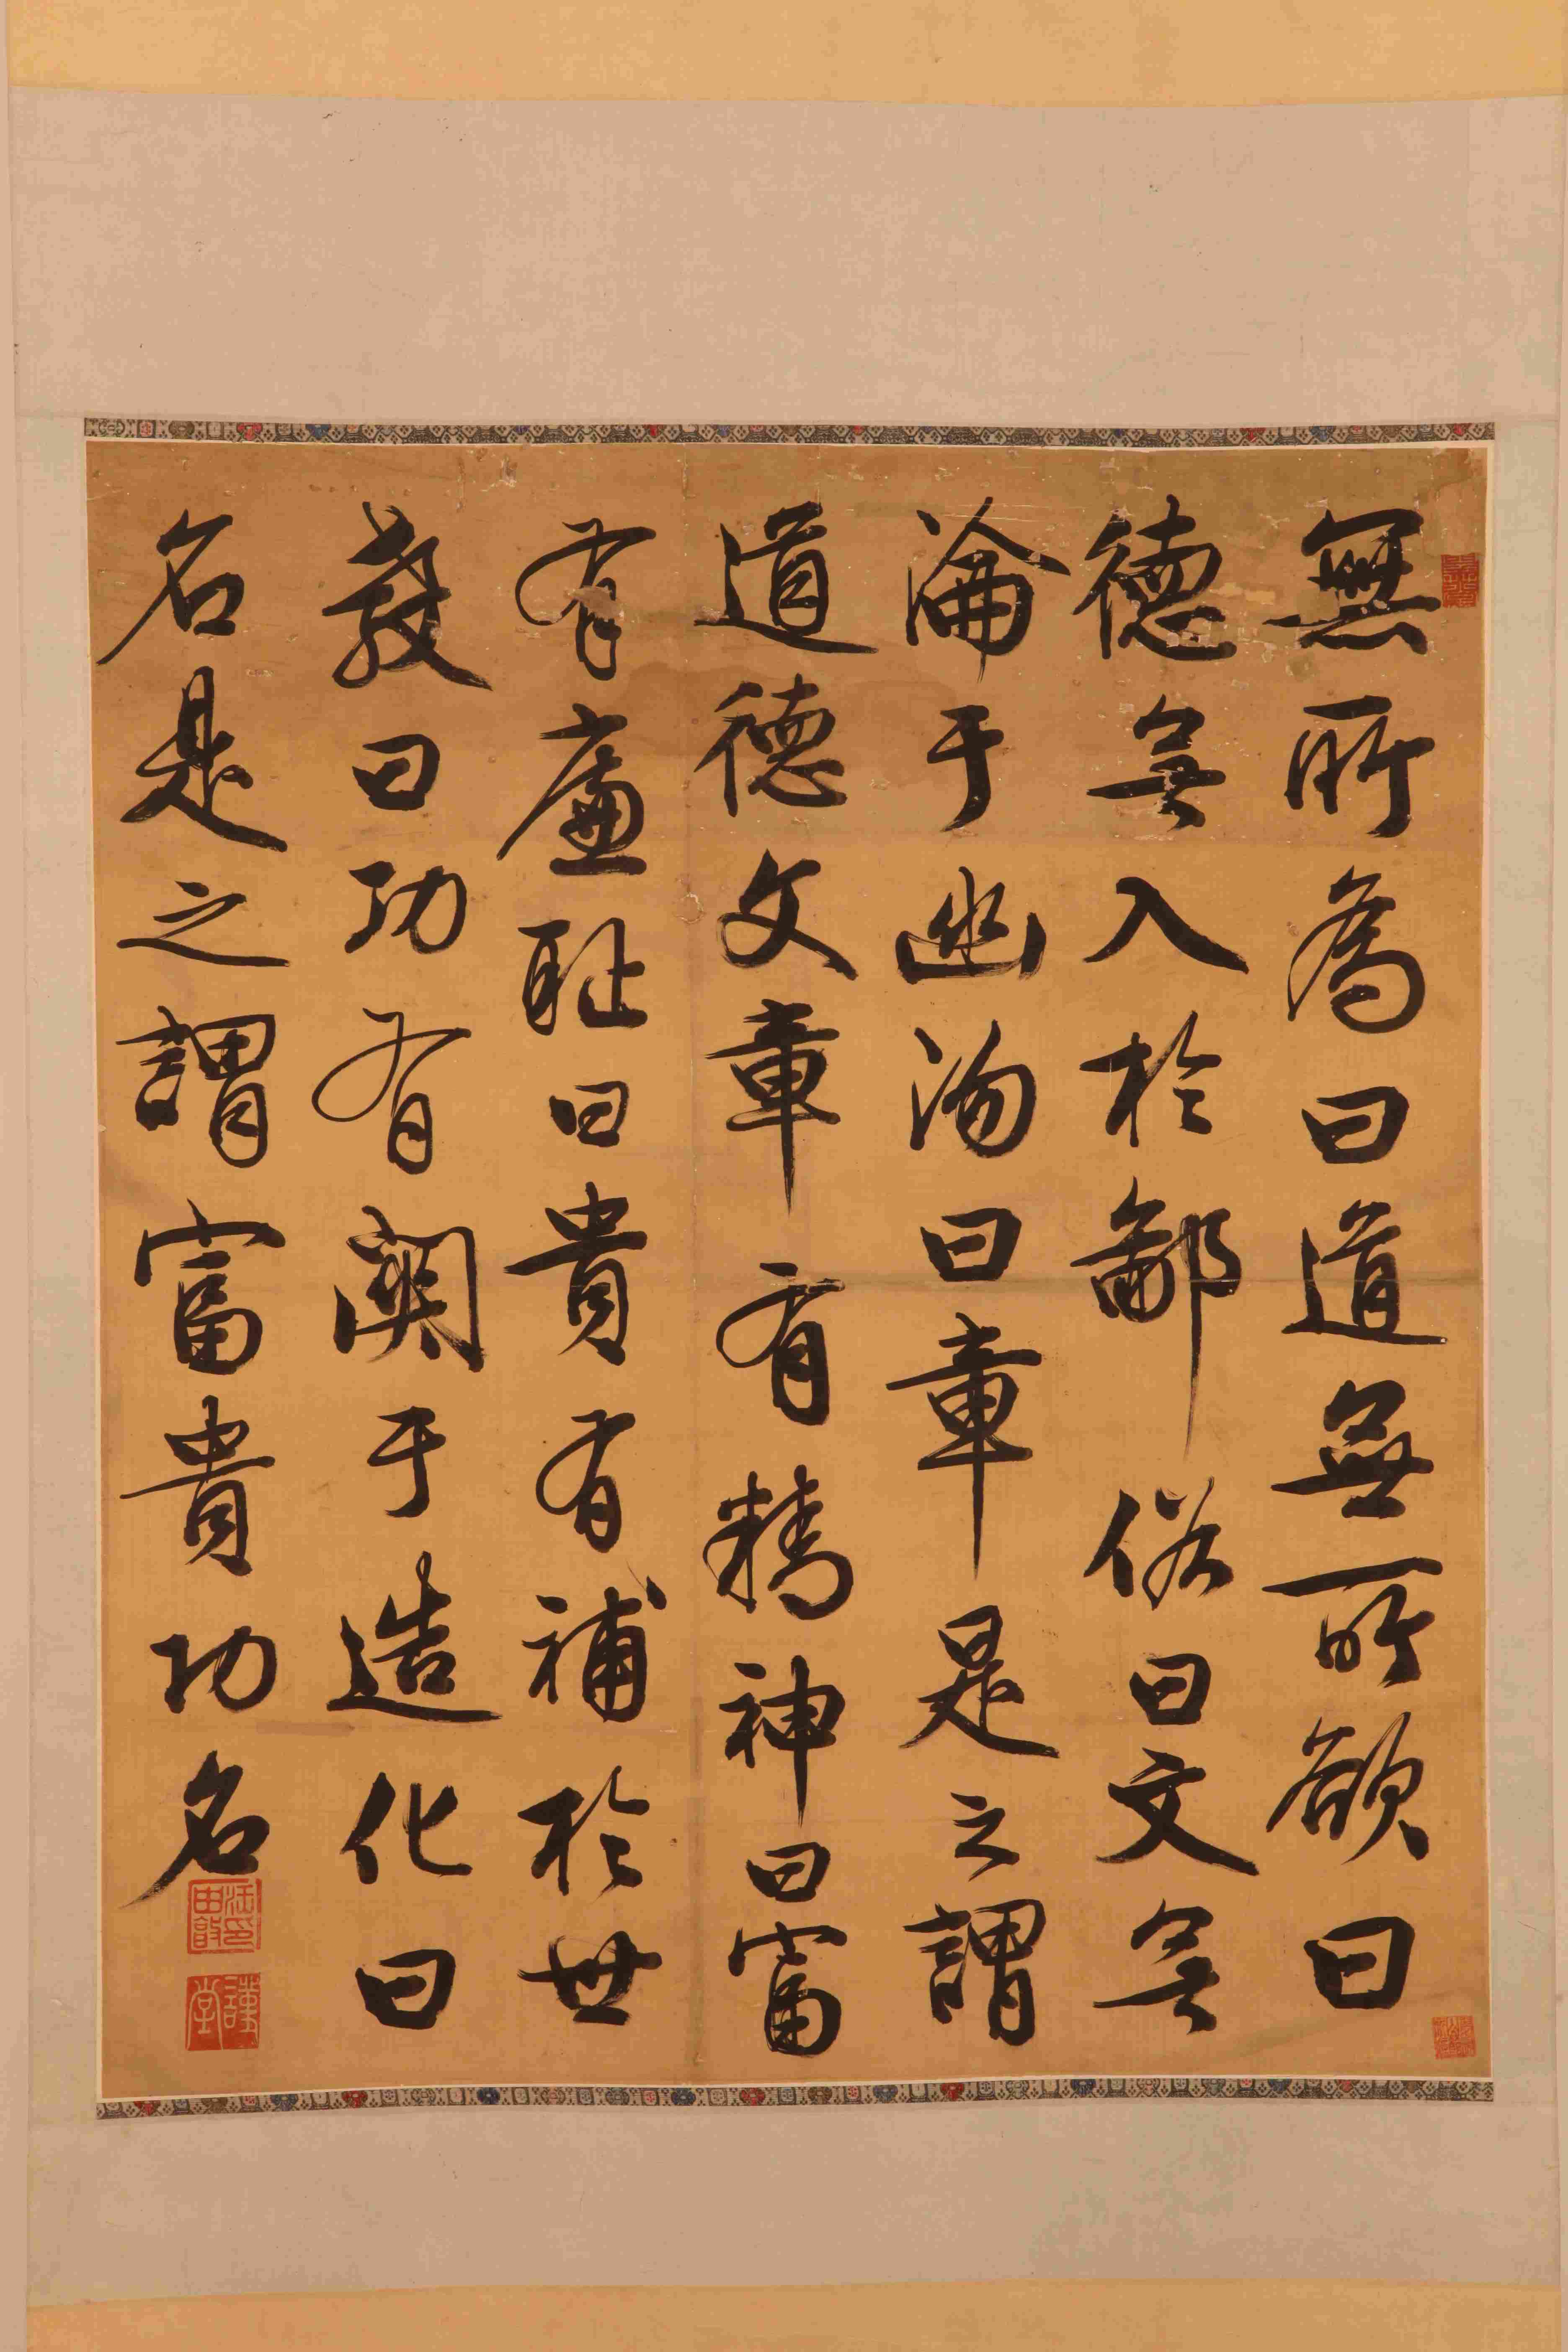 無所為曰道無所欲曰
德無入於鄙俗曰文無
淪于幽沕曰章是之謂
道德文章有精神曰富
有廉耻曰貴有補於世
教曰功有關于造化曰
名是之謂富貴功名
汪由敦印
謹堂